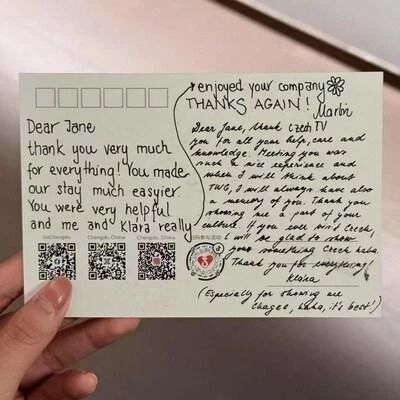 Dear Jane
thank you very much
for everything! You made
our stay much easier.
You were very helpful
and me and Klára really
enjoyed your company
THANKS AGAIN!
Martin
Czech TV
Dear Jane, thank
you for all your help, care and
knowledge. Meeting you was
such a nice experience and
when I will think about
TWG, I will always have also
a memory of you. Thank you
showing me a part of your
culture. If you ever visit Czech,
I will be glad to show
you something Czech haha.
Thank you for everything!
Klára
(Especially for showing me
Chagee, haha, it's best!)
GoChengdu
Chengdu_China
Chengdu_China